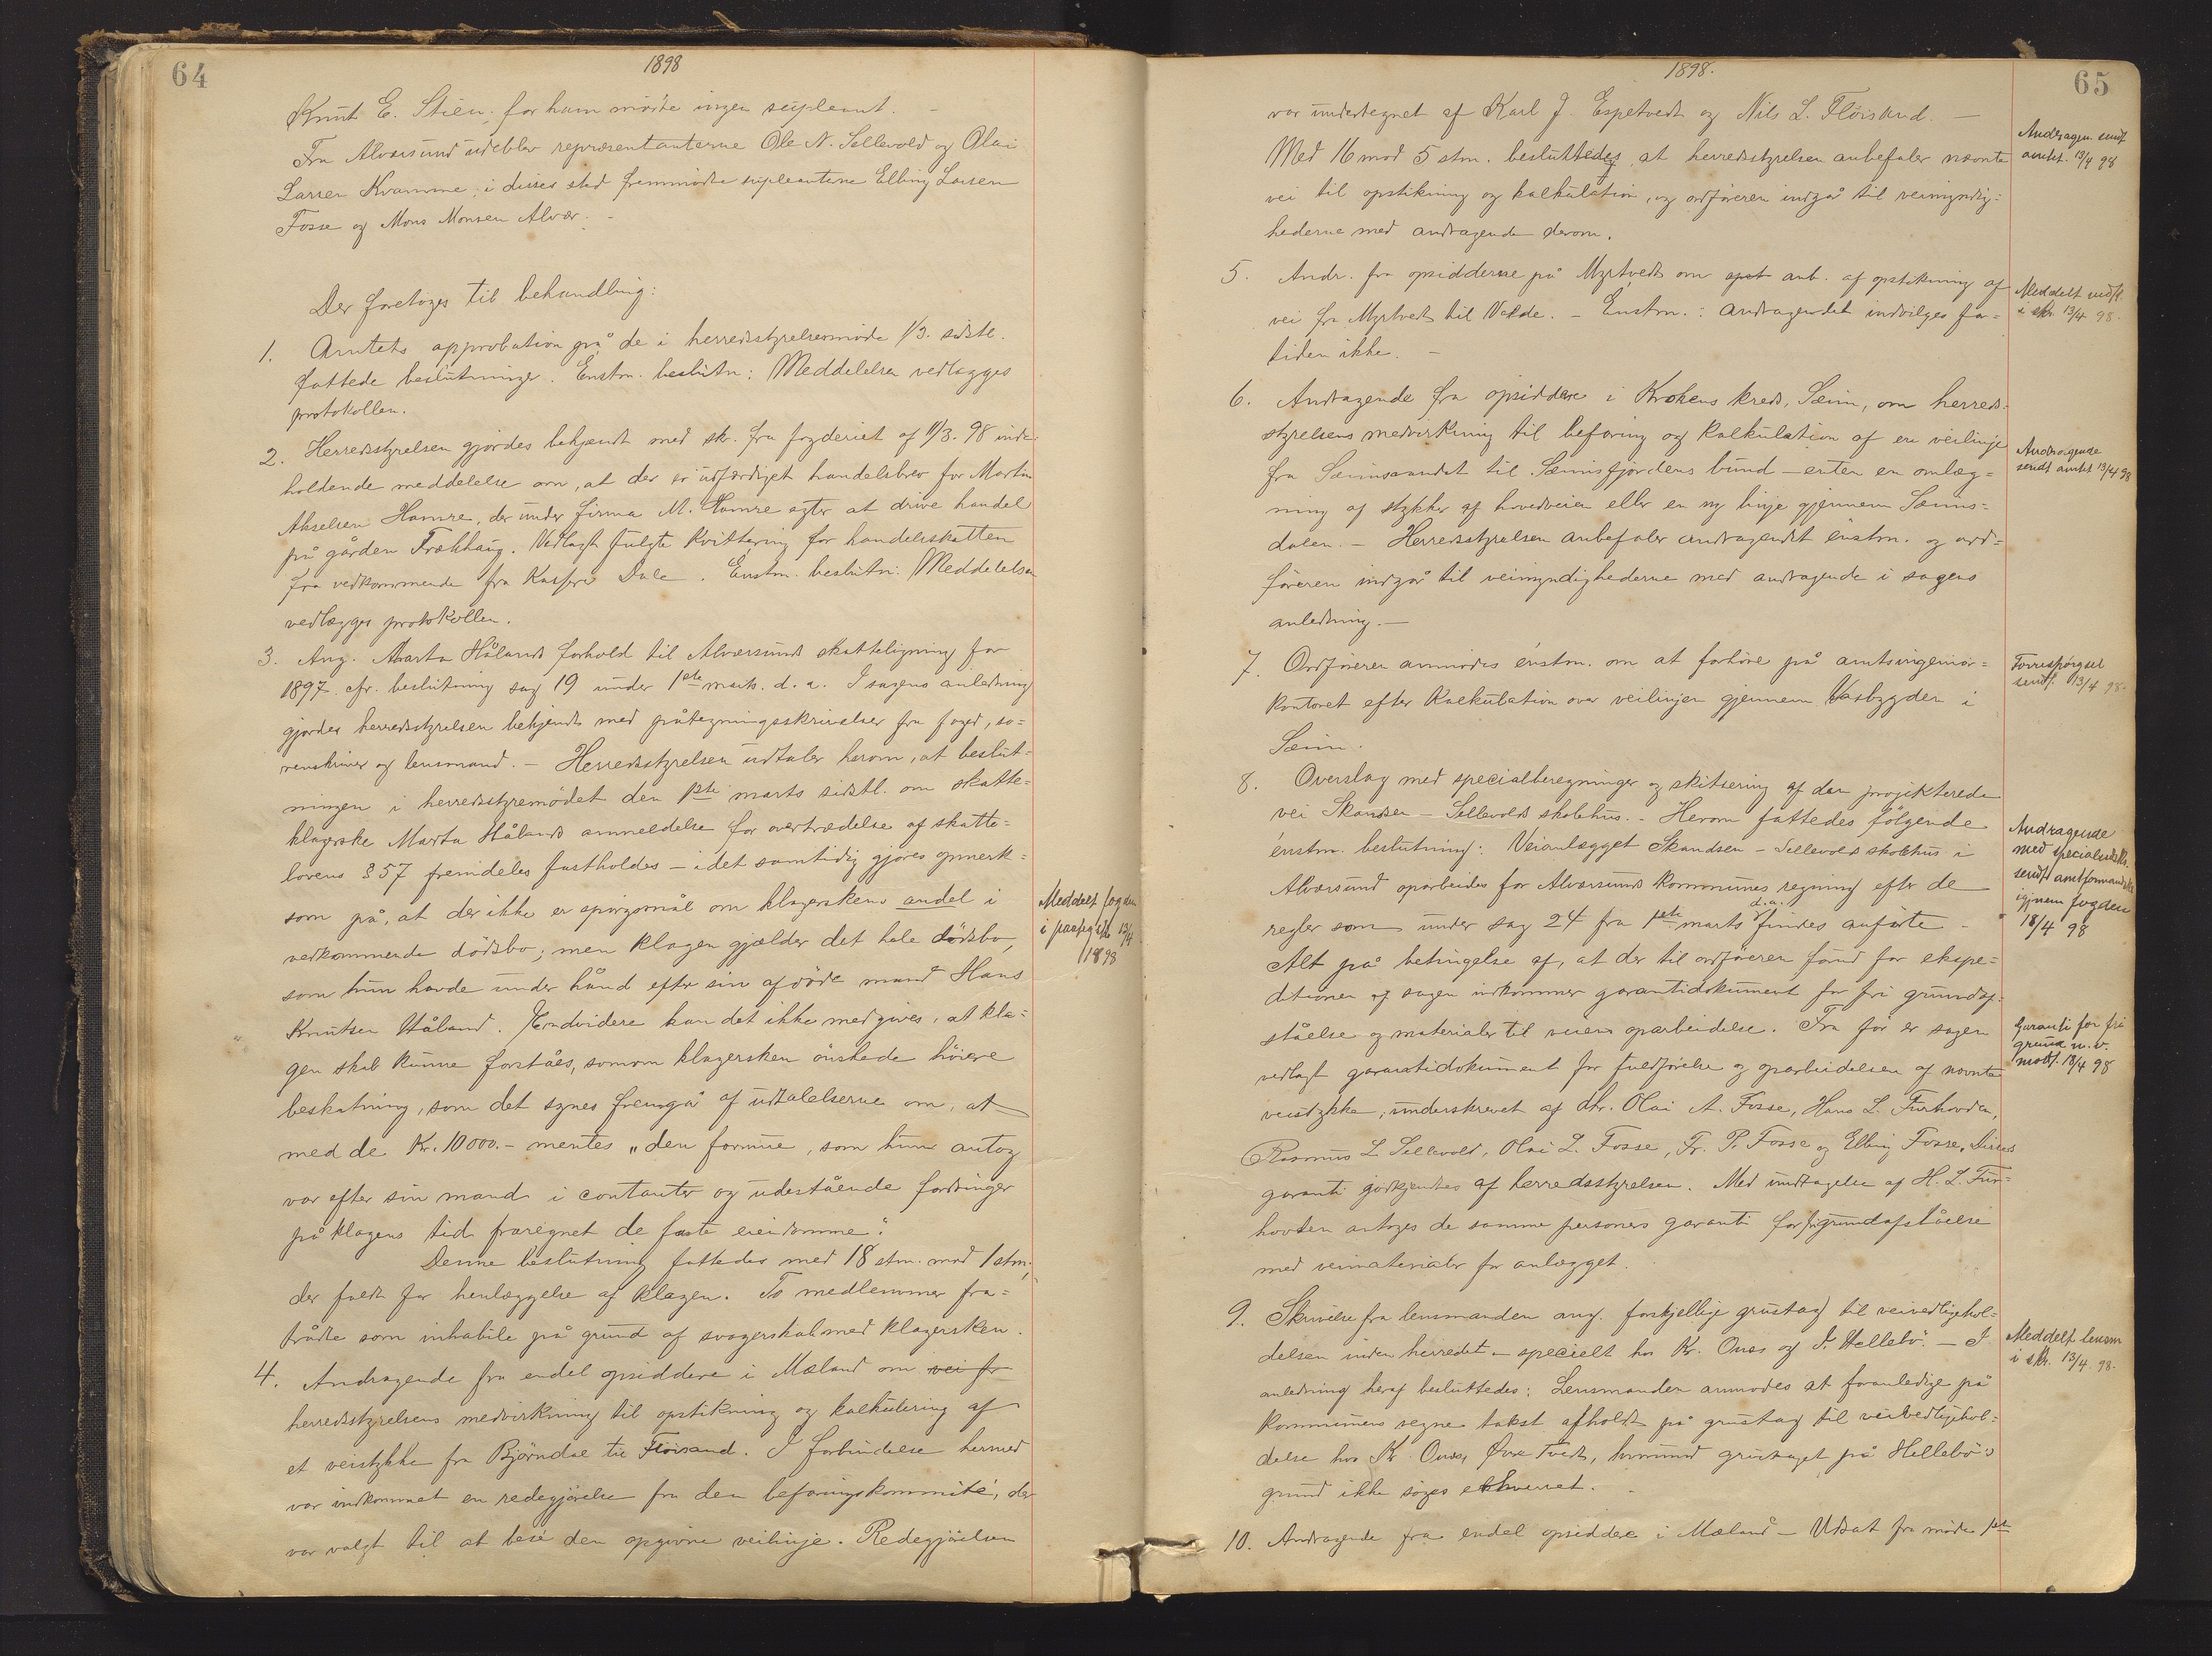 64
1898
Knut E. Stien; for ham mödte ingen supleant. -
Fra Alversund udeblev repræsentanterne Ole N. Sellevold og Olai
Larsen Kvamme; i disses sted fremmödte supleanterne Elling Larsen
Fosse og Mons Monsen Alver. -
Der foretoges til behandling:
1. Amtets approbation på de i herredsstyrelsesmöde 1/3. sidstl.
fattede beslutninger. Enstm. beslutn: Meddelelsen vedlægges
protokollen.
2. Herredsstyrelsen gjordes bekjendt med skr. fra fogderiet af 11/3. 98 inde-
holdende meddelelse om, at der er udfærdiget handelsbrev for Martin
Akselsen Hamre, der under firma M. Hamre agter at drive handel
på gården Frækhaug. Vedlagt fulgte kvittering for handelsskatten
fra vedkommende fra Kasserer Dale. Enstm. beslutn: Meddelelsen
vedlægges protokollen.
3. Ang. Marta Hålands forhold til Alversunds skatteligning for
1897 cfr. beslutning sag 19 under 1ste marts. d. a. I sagens anledning
gjordes herredsstyrelsen bekjendt med påtegningsskrivelser fra foged, so=
renskriver og lensmand. - Herredsstyrelsen udtaler herom, at beslut=
ningen i herredsstyremödet den 1ste marts sidstl. om skatte=
klagerske Marta Hålands anmeldelse for overtrædelse af skatte=
lovens § 57 fremdeles fastholdes - idet samtidig gjöres opmerk=
som på, at der ikke er spörgsmål om klagerskens andel i
vedkommende dödsbo; men klagen gjælder det hele dödsbo,
som hun havde under hånd efter sin afdöde mand Hans
Knutsen Håland. Endvidere kan det ikke medgives, at kla=
gen skal kunne forståes, somom klagersken önskede höiere
beskatning, som det synes fremgå af udtalelserne om, at
med de Kr. 10000.- mentes „den formue, som hun antog
var efter sin mand i contanter og udestående fordringer
på klagens tid fraregnet de faste eiendomme".
Denne beslutning fattedes med 18 stm. mod 1 stm,
der faldt for henlæggelse af klagen. To medlemmer fra=
trådte som inhabile på grund af svogerskab med klagersken.
4. Andragende fra endel opsiddere i Mæland om vei fr
herredsstyrelsens medvirkning til opstikning og kalkulering af
et veistykke fra Björndal til Flöisand. I forbindelse hermed
var indkommet en redegjörelse fra den befaringskommité, der
var valgt til at bese den opgivne veilinje. Redegjörelsen
Meddelt fogden
i paategskr. 13/4
1898
65
1898.
var undertegnet af Karl J. Espetvedt og Nils L. Flöisand. -
Med 16 mod 5 stm. besluttedes, at herredsstyrelsen anbefaler nævnte
vei til opstikning og kalkulation, og ordföreren indgår til veimyndig=
hederne med andragende derom.
5. Andr. fra opsidderne på Myrtvedt om opst anb. af opstikning af
vei fra Myrtvedt til Valde. - Enstm.: andragendet indvilges for=
tiden ikke. -
6. Andragende fra opsiddere i Krokens kreds, Sæim, om herreds-
styrelsens medvirkning til befaring og kalkulation af en veilinje
fra Sæimsvandet til Sæimsfjordens bund - enten en omlæg=
ning af stykker af hovedveien eller en ny linje gjennem Sæims=
dalen. - Herredsstyrelsen anbefaler andragendet énstm. og ord=
föreren indgår til veimyndighederne med andragende i sagens
anledning. -
7. Ordföreren anmodes énstm. om at forhöre på amtsingeniör=
kontoret efter kalkulation over veilinjen gjennem Vasbygden i
Sæim.
8. Overslag med specialberegninger og skitsering af den projekterede
vei Skandsen - Sellevold skolehus. - Herom fattedes fölgende
énstm. beslutning: Veianlægget Skandsen - Sellevold skolehus i
Alversund oparbeides for Alversunds kommunes regning efter de
regler som under sag 24 fra 1ste marts d.a. findes anförte -
Alt på betingelse af, at der til ordföreren forud for ekspe=
ditionen af sagen indkommer garantidokument for fri grundaf-
ståelse og materialer til veiens oparbeidelse. Fra för er sagen
vedlagt garantidokument for fuldförelse og oparbeidelsen af nævnte
veistykke, underskrevet af dhr. Olai A. Fosse, Hans L. Furhovden,
Rasmus L. Sellevold, Olai L. Fosse, Fr. P. Fosse og Elling Fosse. Disses
garanti godkjendtes af herredsstyrelsen. Med undtagelse af H. L. Fur=
hovden antoges de samme personers garanti for fri grundafståelse
med veimaterialer for anlægget.
9. Skrivelse fra lensmanden ang. forskjellige grustag til veivedligehol=
delsen inden herredet - specielt hos Kr. Onæs og J. Hellebö. - I
anledning heraf besluttedes: Lensmanden anmodes at foranledige på
kommunens regne takst afholdt på grustag til veivedligehol=
delse hos Kr. Onæs, Övre Tvedt, hvorimod grustaget på Hellebö's
grund ikke söges erhvervet. -
10. Andragende fra endel opsiddere i Mæland - Udsat fra möde 1ste
Andragen. sendt
amtet. 13/4 98
Meddelt vedk.
i skr. 13/4 98.
Andragende
sendt amtet 13/4 98
Forespörgsel
sendt. 13/4 98.
Andragende
med specialudskr.
sendt amtformandsk.
igjenem fogden
18/4 98
Garanti for fri
grund m.v.
modt. 18/4 98
Meddelt lensm
i skr. 13/4 98.